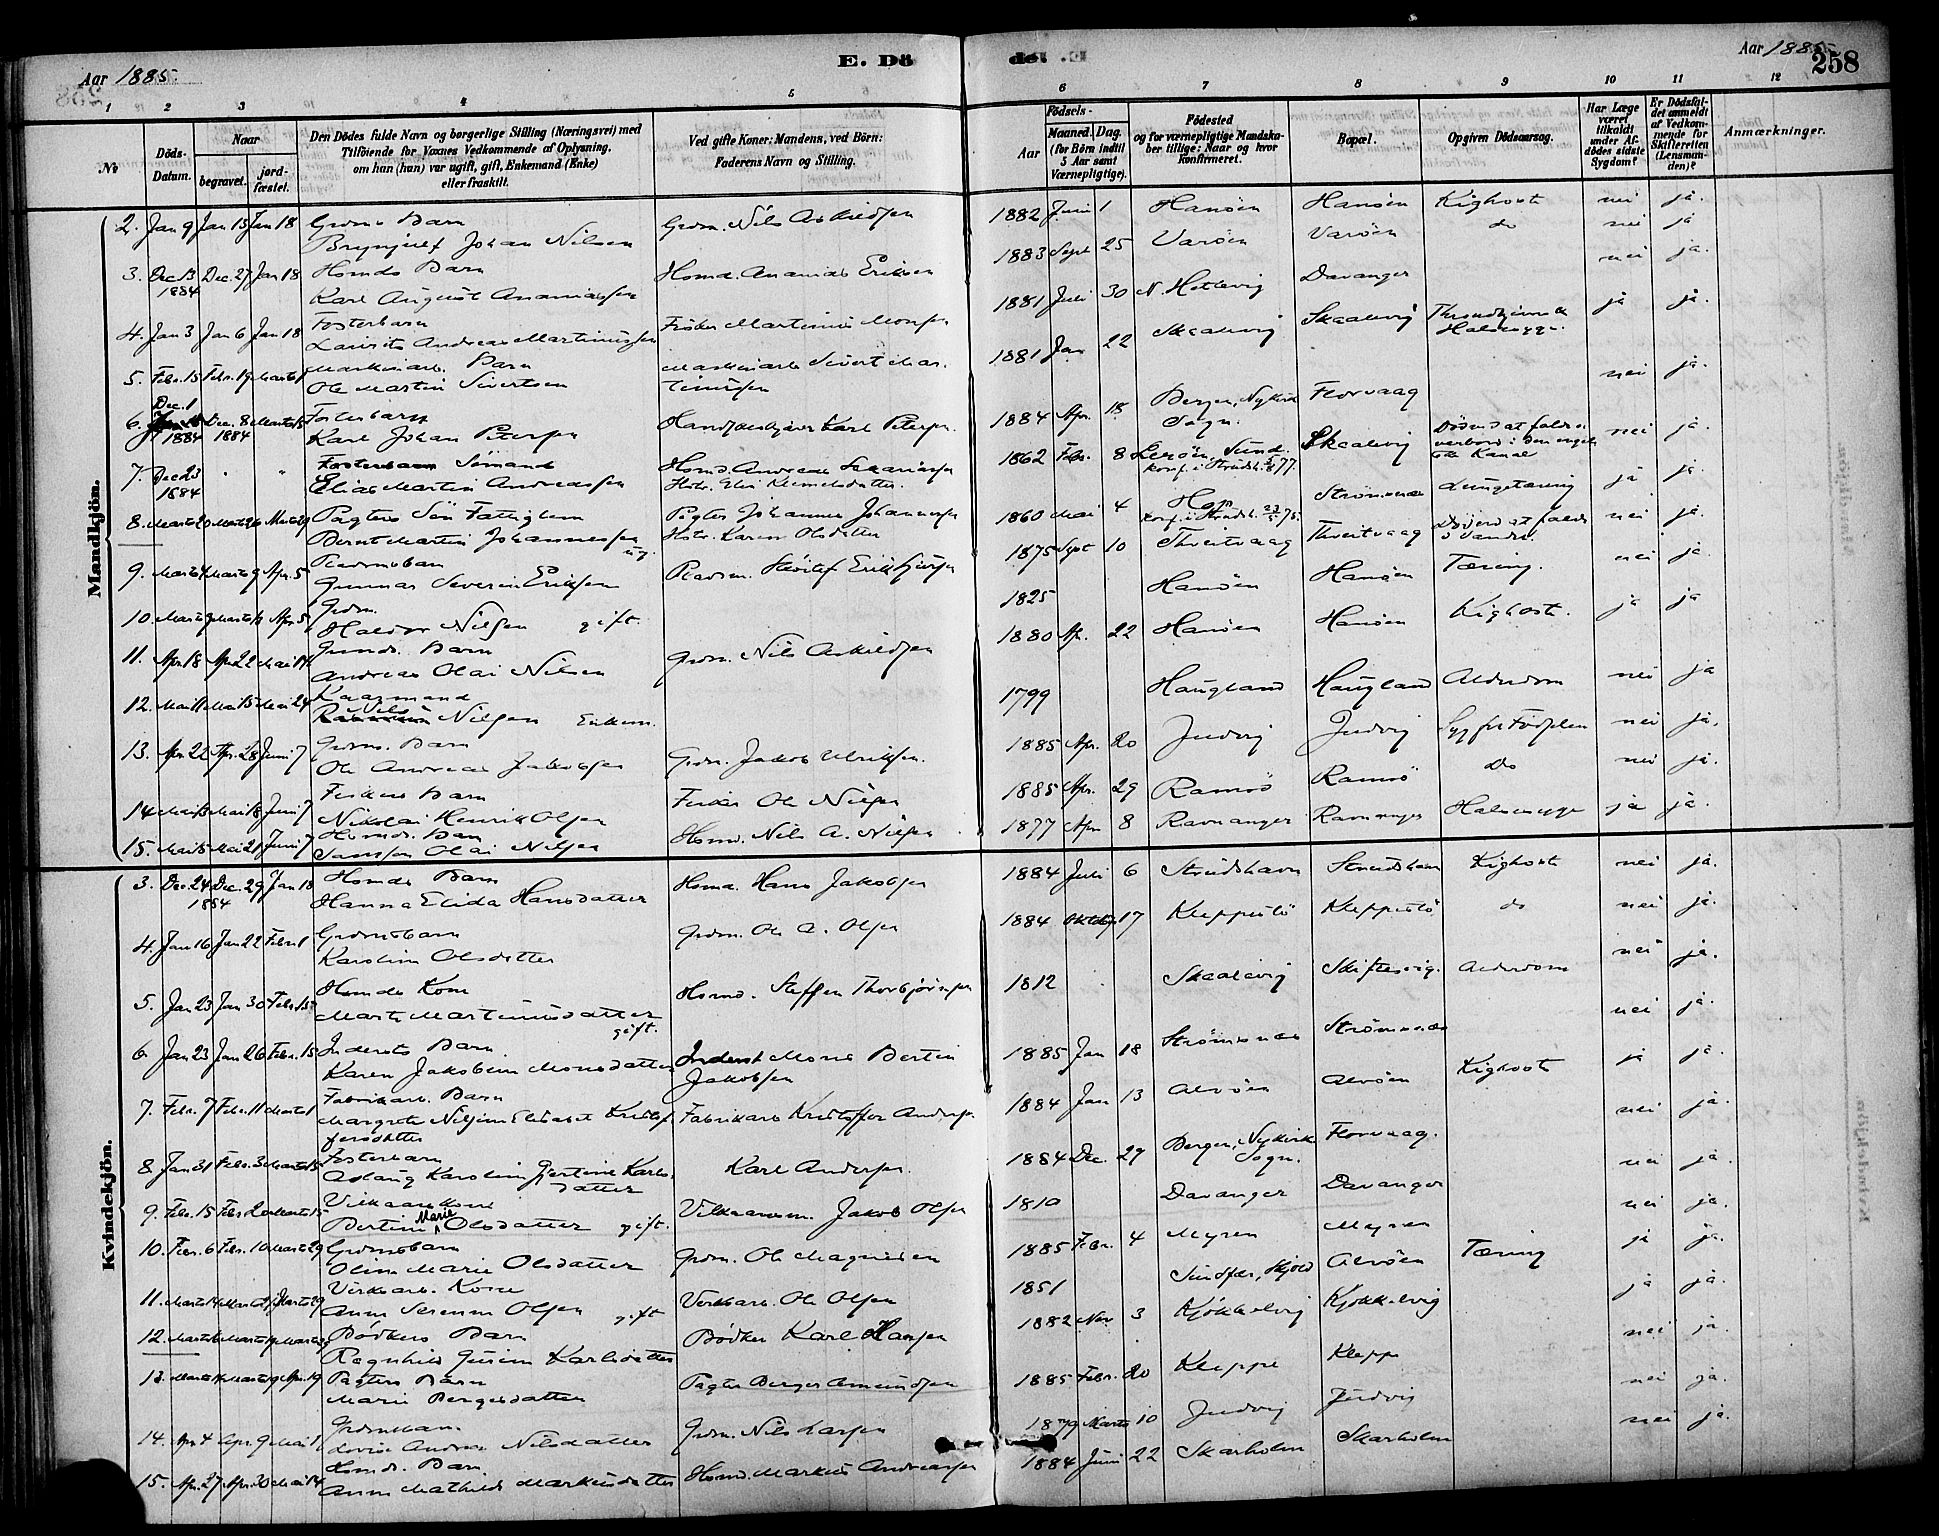 Aar 1885.
E. Dö
de. E.
Aar 1885.
258
1 2 3 4 5 6 7 8 9 10 11 12
No
Döds-Datum.
Naar
begravet.
jord-fæstet.
Den Dödes fulde Navn og borgerlige Stilling (Næringsvei) med
Tilföiende for Voxnes Vedkommende af Oplysning,
om han (hun) var ugift, gift, Enkemand (Enke)
eller fraskilt.
Ved gifte Koner: Mandens, ved Börn:
Faderens Navn og Stilling.
Födsels-
Aar
Maaned. Dag.
(for Börn indtil
5 Aar samt
Værnepligtige).
Födested
og for værnepligtige Mandska-
ber tillige: Naar og hvor
konfirmeret.
Bopæl.
Opgiven Dödsaarsag.
Har Læge
været
tilkaldt
under Af-
dödes sidste
Sygdom?
Er Dödsfal-
det anmeldt
af Vedkom-
mende for
Skifteretten
(Lensman-
den)?
Anmærkninger.
Mandkjön.
2. Jan 9 Jan 15 Jan 18 Grdms Barn Grdm. Nils Askildsen 1882 Juni 1 Hanöen Hanöen Kighoste nei ja.
Brynjulf Johan Nilsen
3. Dec 13 Dec. 27 Jan 18 Hsmds Barn Hsmd. Ananias Eriksen 1883 Sept 25 Varöen Varöen do nei ja
1884 Karl August Ananiassen
4. Jan 3 Jan 6 Jan 18 Fosterbarn Fisker Martinus Monsen 1881 Juli 30 N. Hetlevig Davanger nei ja.
Laurits Andreas Martinussen
5. Febr. 15 Febr. 19 Marts 1 Maskinarb. Barn Maskinarb Sivert Mar- 1881 Jan 22 Skaalevig Skaalevig Throndhjemsk ja ja.
Ole Martin Sivertsen tinusen Halssyge.
6. Dec. 1 1884 Dec. 8 1884 Marts 15 Fosterbarn Karl Petersen. 1884 Apr. 18 Bergen, Nykirk Florvaag nei ja.
Karl Johan Petersen Sogn.
7. Dec 23 " " Sömand Hsmd. Andreas 1862 Febr. 8 Lerøen, Sund. Skaalevig Döde ved at falde o- nei ja.
1884 Elias Martin Andreassen verbord i den engel-
ske Kanal
8. Marts 20 Marts 26 Marts 29 Pagters Sön Fattiglem Pagter Johannes Johannesen 1860 Mai 4 Hop Strömsnes Lungetæring ja ja.
Bernt Martin Johannessen ug. Hstr. Karen Olsdatter
9. Marts 4 Marts 9 Apr. 5 Gunnar Severin Eriksen 1875 Sept 10 Thveitvaag Thveitvaag Död ved at falde nei ja.
i Vandet.
10. Apr 5 Grdm. 1825 Hanöen Hanöen Tæring. nei ja
Haldor Nilsen gift.
11. Apr 18 Apr 22 Mai 14 Grmds. Barn Grdm. Nils Askildsen 1880 Ap. 22 Hanöen Hanöen Kighoste. ja ja
Andreas Olai Nilsen
12. Mai 11 Mai 15 Mai 24 Kaarmand 1799 Haugland Haugland Alderdom nei ja
Nils Nilsen Enkem.
13. Apr 22 Apr. 28 Juni 7 Grdm. Barn Grdm. Jakob Ulriksen. 1885 Apr. 20 Judvig Judvig Syg fra Födselen nei ja.
Ole Andreas Jakobsen
14 Mai 13 Mai 18 Juni 7 Fiskers Barn Fisker Ole Nilsen 1885 Apr. 29 Ramsö Ramsö do nei ja.
Nikolai Henrik Olsen
15. Mai 15 Mai 21 Juni 7 Hsmds. Barn Hsmd. Nils A. Nilsen 1877 Apr 8 Ravnanger Ravnanger Halssyge ja ja.
Samson Olai Nilsen
Kvindekjön.
3. Dec 24 Dec. 29 Jan 18 Hsmds Barn Hsmd. Hans Jakobsen 1884 Juli 6 Strudshavn Strudshavn Kighoste nei ja.
1884 Hanna Elida Hansdatter
4. Jan 16 Jan 22 Febr 1 Grdmsbarn Grdm. Ole A. Olsen 1884 Oktober 17 Kleppestö Kleppestö do nei ja.
Karoline Olsdatter
5. Jan 23 Jan 30 Febr 15 Hsmds Kone Hsmd. Steffen Thorbjörnsen 1812 Skaalevig Skiftesvig. Alderdom nei ja.
Marte Martinusdatter gift.
6. Jan 23 Jan 26 Febr. 15 Indersts Barn Inderst Mons Bertin 1885 Jan 18 Strömsnes Strömsnes nei ja.
Karen Jakobine Monsdatter Jakobsen
7. Febr. 7 Febr. 11 Marts 1 Fabrikarb. Barn Fabrikarb Kristoffer Andersen 1884 Jan 13 Alvöen Alvöen Kighoste ja ja.
Margrete Nilsine Elisabet Kristof-
fersdatter
8 Jan 31 Febr. 3 Marts 15 Fosterbarn Karl Andersen. 1884 Dec. 29 Bergen, Nykirk Florvaag. nei ja.
Aslaug Karoline Gjertine Karls- Sogn.
datter
9. Febr. 15 Febr 20 Marts 15 Vilkaarskone Vilkaarsm. Jakob Olsen 1810 Davanger Davanger nei ja.
Bertine Marie Olsdatter gift.
10. Febr. 6 Febr. 10 Marts 29 Grdmsbarn Grdm. Ole Magnesen 1885 Febr. 4 Myren Myren nei ja.
Oline Marie Olsdatter
11. Marts 29 Verkarb. Kone Verkarb. Ole Olsen 1851 Alvöen Tæring ja ja.
Anne Olsen gift
12. Bödkers Barn Bödker Karl Hansen 1882 Nov 3 Kjökkelvig Kjökkelvig ja ja.
Ragnhild Karlsdatter
13. Apr 19 Pagters Barn Pagter Berger Amundsen 1885 Febr. 20 Kleppe Kleppe nei ja.
Marie Bergesdatter
14. Apr 4 Apr. 9 Mai 1 Grdmsbarn Grdm. Nils Larsen 1879 Marts 10 Judvig Judvig nei ja.
Lovise Andrea Nilsdatter
15. Apr. 27 Apr. 30 Mai 14 Hsmds. Barn Hsmd. Markus Andreassen 1884 Juni 22 Skarholm Skarholm nei ja.
Anne Mathilde Markusdatter